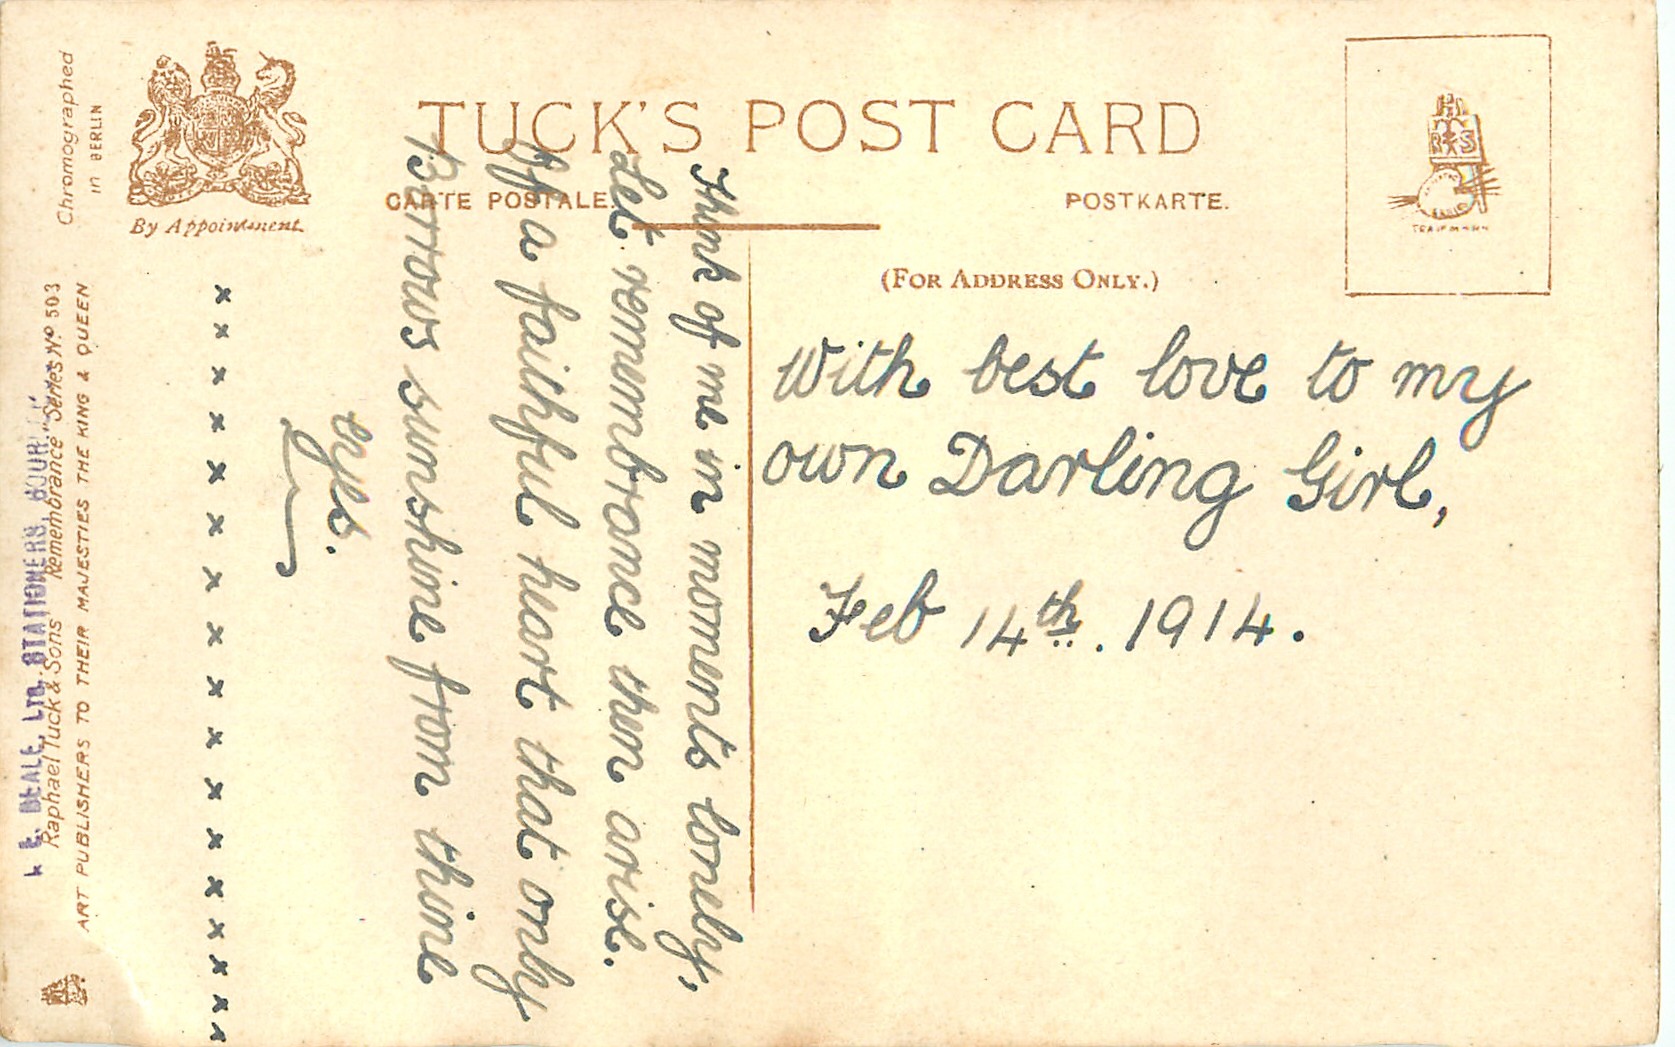 Chromographed
in BERLIN
By Appointment.
TUCK'S POST CARD
CARTE POSTALE.
POSTKARTE.
(FOR ADDRESS ONLY.)
TRADE MARK
With best love to my
own Darling Girl,
Feb 14th. 1914.
Think of me in moments lonely,
Let remembrance then arise.
Of a faithful heart that only
Borrows sunshine from thine
eyes.
x x x x x x x x x x x x x x x x
BEALE, LTD. STATIONERS,
Raphael Tuck & Sons "Remembrance" Series No 503
ART PUBLISHERS TO THEIR MAJESTIES THE KING & QUEEN